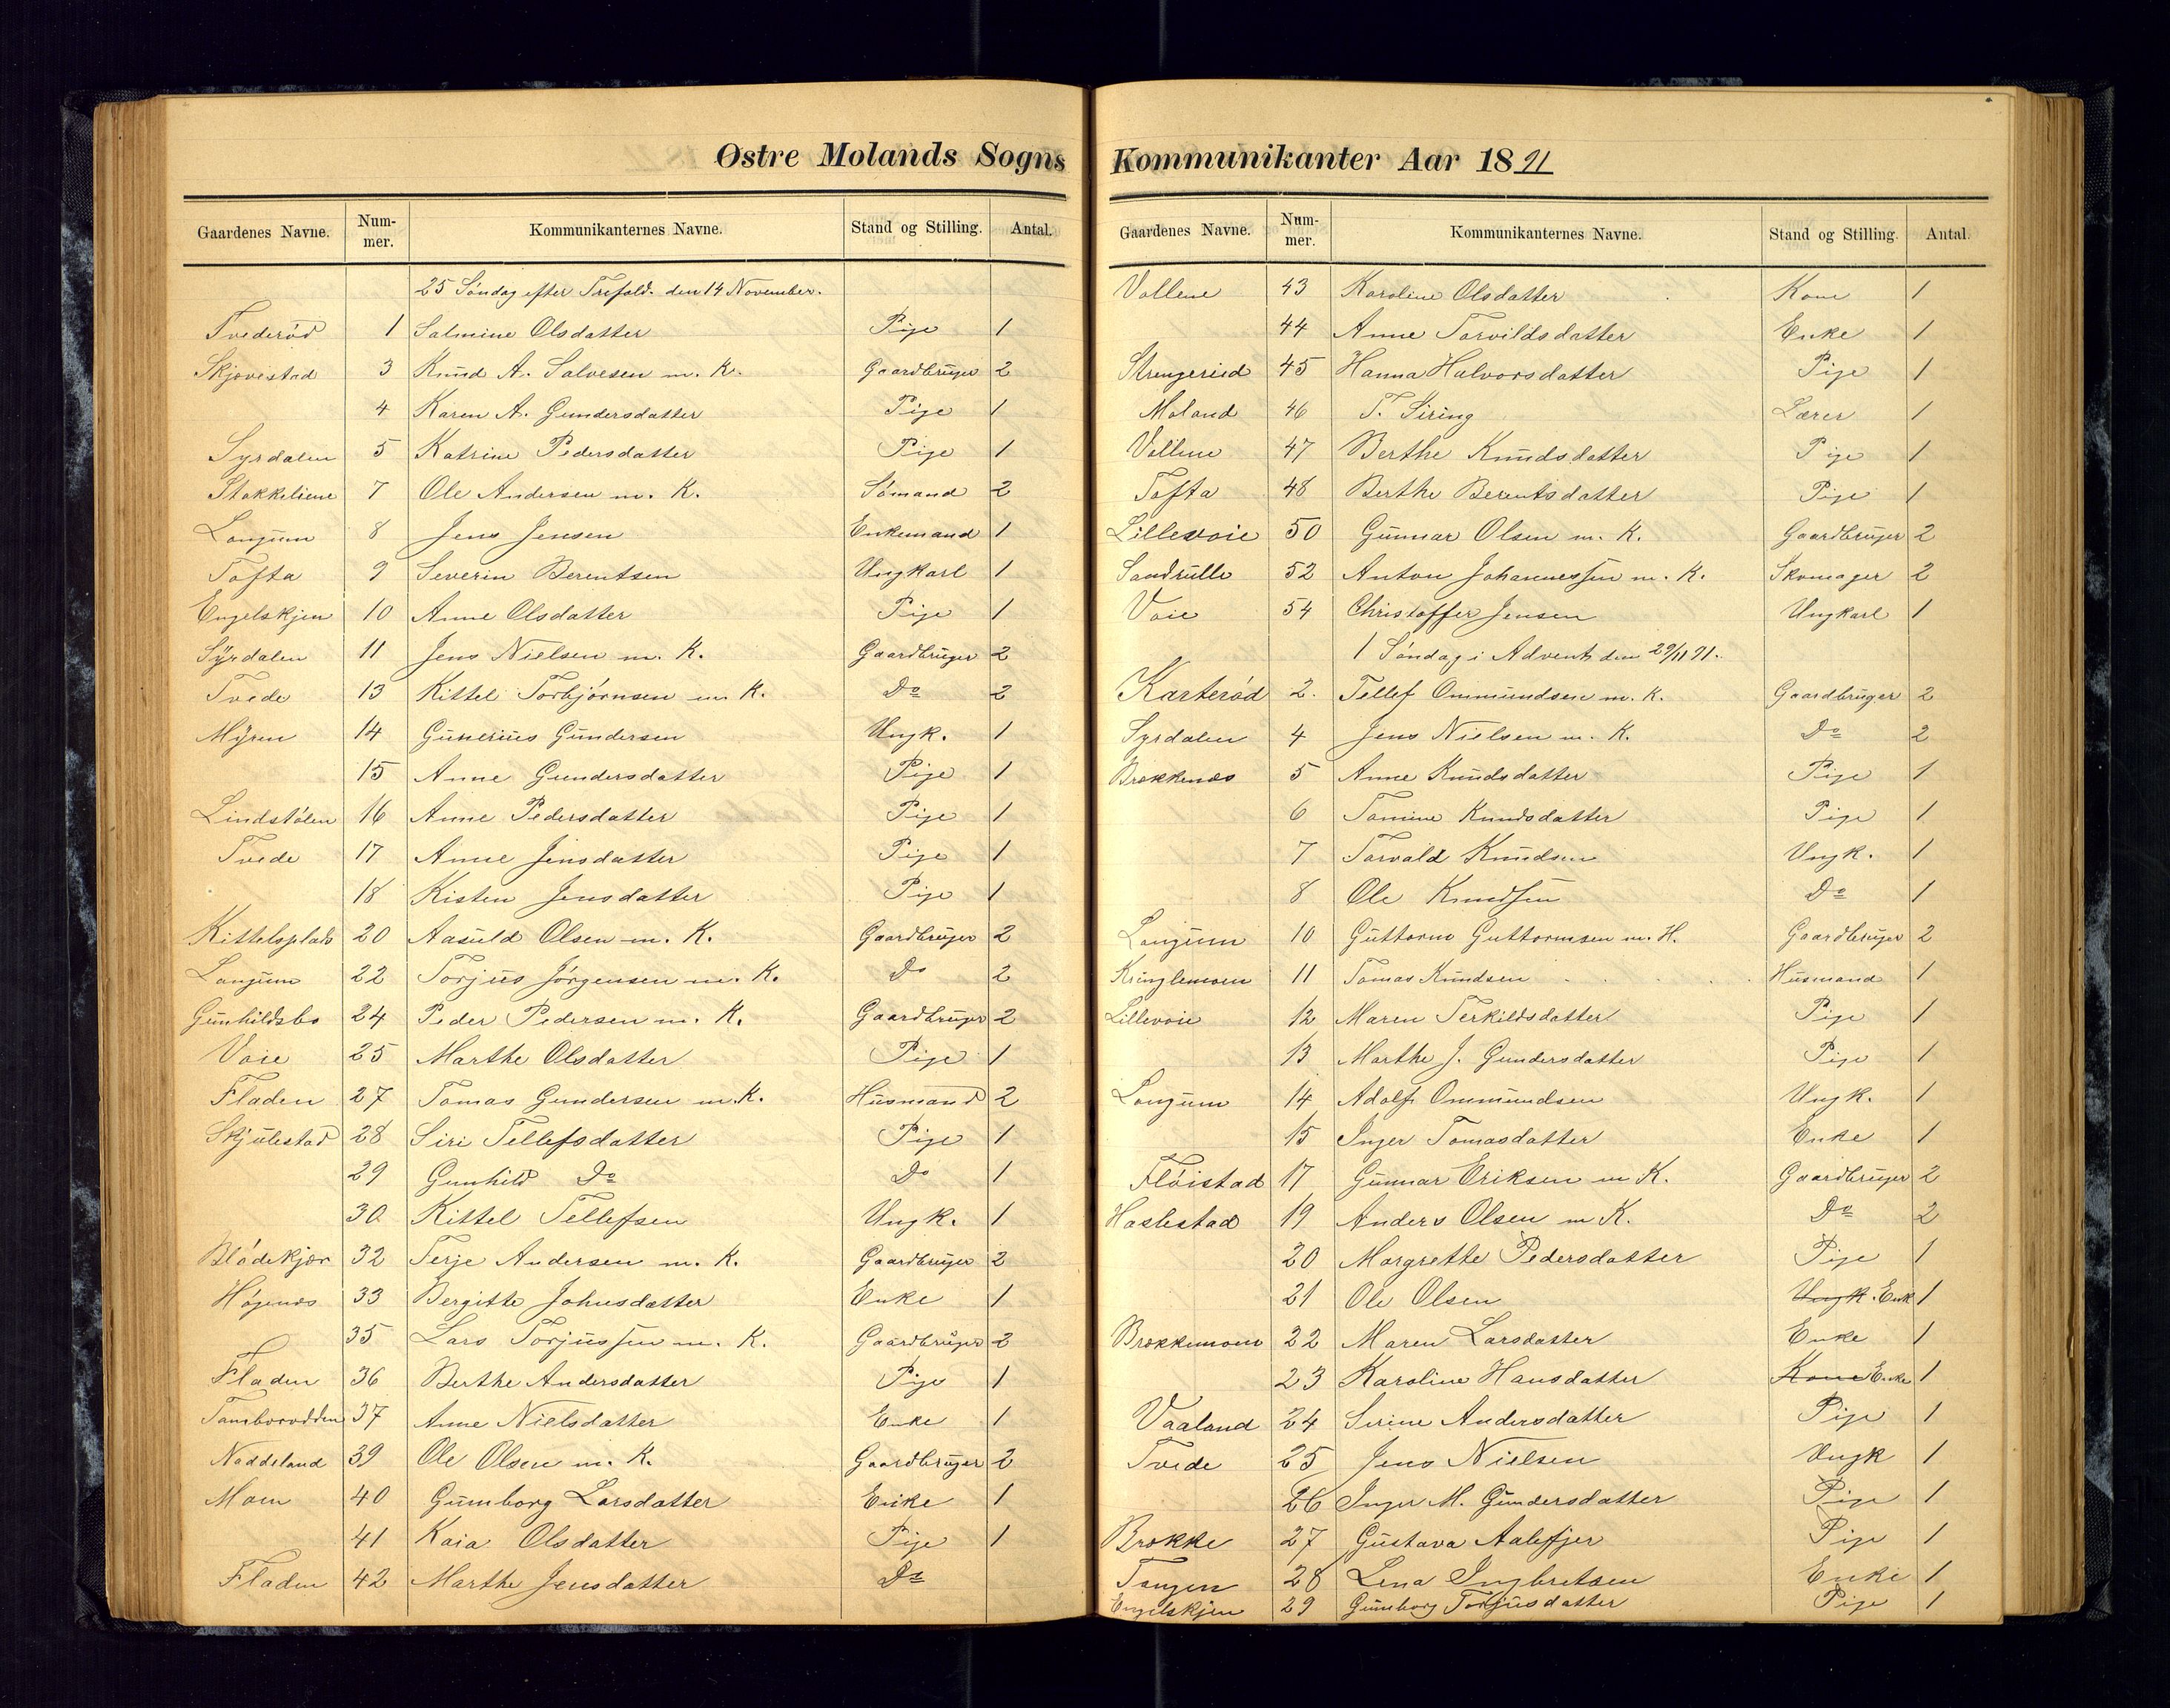 Østre Molands Sogns
Gaardenes Navne. Num-mer. Kommunikanternes Navne. Stand og Stilling. Antal.
25 Söndag efter Trefold. den 14 November.
Tvederöd 1 Salmine Olsdatter Pige 1
Skjævestad 3 Knud A. Salvesen m. K. Gaardbruger 2
4 Karen A. Gundersdatter Pige 1
Syrdalen 5 Katrine Pedersdatter Pige 1
Stokkeliene 7 Ole Andersen m. K. Sömand 2
Longum 8 Jens Jensen Enkemand 1
Tofta 9 Severin Berentsen Ungkarl 1
Engelskjen 10 Anne Olsdatter Pige 1
Syrdalen 11 Jens Nielsen m. K. Gaardbruger 2
Tvede 13 Kittel Torbjörnsen m K. Do 2
Myren 14 Gunerius Gundersen Ungk. 1
15 Anne Gundersdatter Pige 1
Lindstölen 16 Anne Pedersdatter Pige 1
Tvede 17 Anne Jensdatter Pige 1
18 Kisten Jensdatter Pige 1
Kittelsplads 20 Aasuld Olsen m. K. Gaardbruger 2
Longum 22 Torjus Jörgensen m. K. Do 2
Gunhildsbo 24 Peder Pedersen m. K. Gaardbruger 2
Vaie 25 Marthe Olsdatter Pige 1
Fladen 27 Tomas Gundersen m. K. Husmand 2
Skjulestad 28 Siri Tellefsdatter Pige 1
29 Gunhild Do Do 1
30 Kittel Tellefsen Ungk. 1
Blödekjær 32 Terje Andersen m. K. Gaardbruger 2
Högenes 33 Bergitte Johnsdatter Enke 1
35 Lars Torjussen m. K. Gaardbruger 2
Fladen 36 Berthe Andersdatter Pige 1
37 Anne Nielsdatter Enke 1
Naddeland 39 Ole Olsen m. K. Gaardbruger 2
Moen 40 Gumborg Larsdatter Enke 1
41 Kaia Olsdatter Pige 1
Fladen 42 Marthe Jensdatter Do
Kommunikanter Aar 1891
Gaardenes Navne. Num-mer. Kommunikanternes Navne. Stand og Stilling. Antal.
Vollene 43 Karoline Olsdatter Kone 1
44 Anne Torvildsdatter Enke 1
Strengeried 45 Hanna Halvorsdatter Pige 1
Moland 46 T. Siring Lærer 1
Vollene 47 Berthe Knudsdatter Pige 1
Tofta 48 Berthe Berentsdatter Pige 1
Lillevoie 50 Gunnar Olsen m. K. Gaardbruger 2
Sandrulle 52 Anton Johannessen m. K. Skomager 2
Voie 54 Christoffer Jensen Ungkarl 1
1 Söndag i Advent den 29/11 91.
Karteröd 2. Tellef Ommundsen m. K. Gaardbruger 2
Syrdalen 4 Jens Nielsen m. K. Do 2
Brækkenæs 5 Anne Knudsdatter Pige 1
6 Tomine Knudsdatter Pige 1
7 Torvald Knudsen Ungk. 1
8 Ole Knudsen Do 1
Longum 10 Guttorm Guttormsen m. H. Gaardbruger 2
Kringlemoen 11 Tomas Knudsen Husmand 1
Lillevoie 12 Maren Terkildsdatter Pige 1
13 Marthe J. Gundersdatter Pige 1
Longum 14 Adolf Ommundsen Ungk. 1
15 Inger Tomasdatter Enke 1
Flöistad 17 Gunnar Eriksen m K. Gaardbruger 2
Haslestad 19 Anders Olsen m K. Do 2
20 Margrette Pedersdatter Pige 1
21 Ole Olsen Ungk. Enk 1
Brækkemoen 22 Maren Larsdatter Enke 1
23 Karoline Hansdatter Kone Enke 1
Vaaland 24 Serine Andersdatter Pige 1
Tvede 25 Jens Nielsen Ungk 1
26 Inger M. Gundersdatter Pige 1
Brække 27 Gustava Aalefjer Pige 1
Tangen 28 Lena Ingbretsen Enke 1
Engelskjen 29 Gumborg Torjusdatter Pige 1